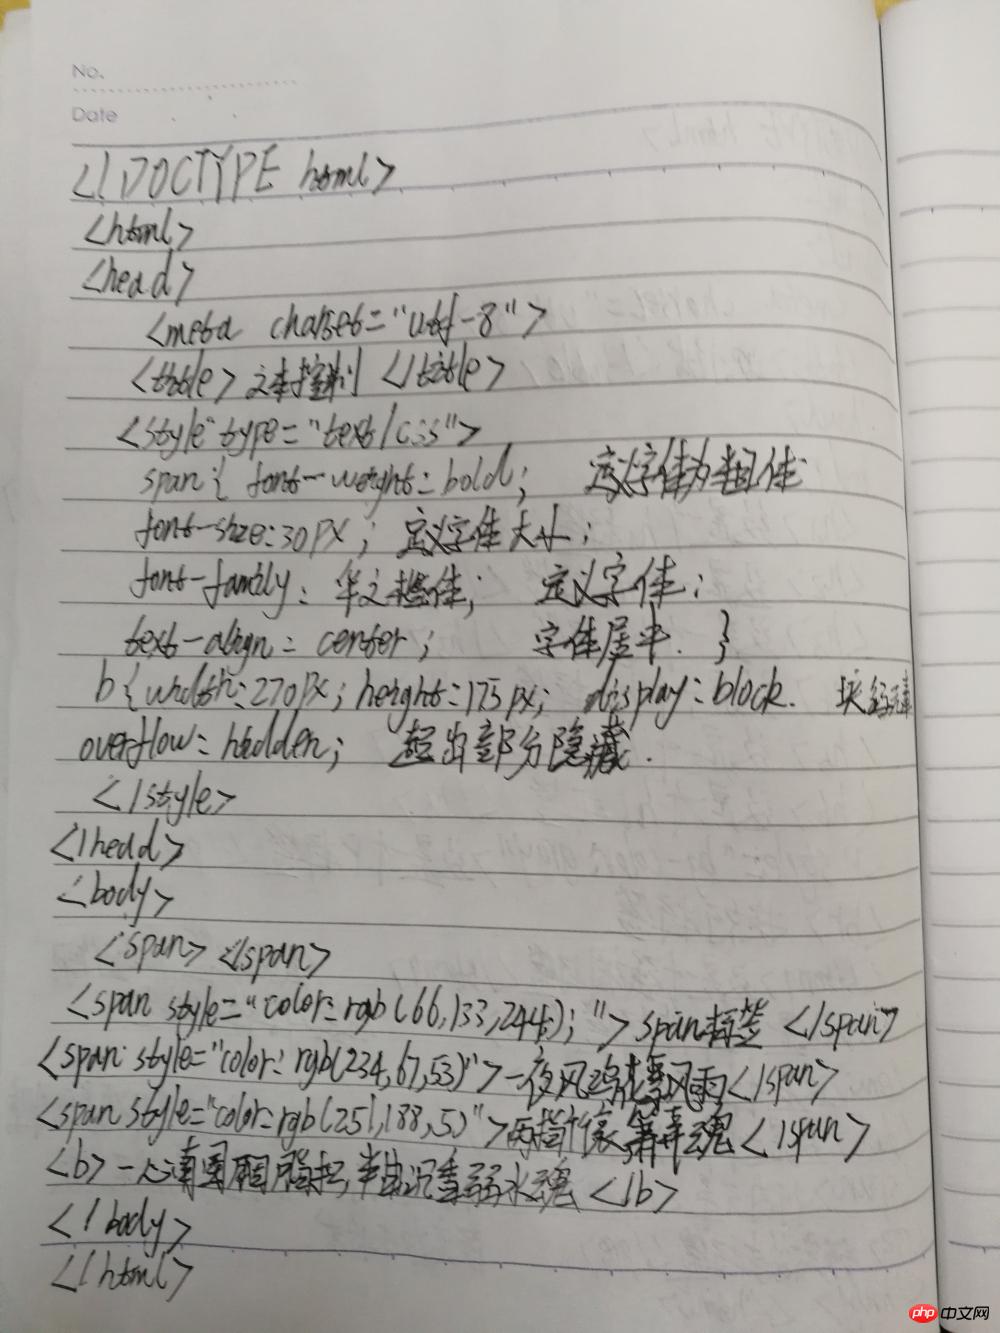 No.
Date
<!DOCTYPE html>
<html>
<head>
<meta charset="utf-8">
<title>文本控制</title>
<style type="text/css">
span{ font-weight:bold; 定义字体为粗体
font-size:30px; 定义字体大小;
font-family:华文楷体; 定义字体;
text-align:center; 字体居中. }
b{width:270px; height:175px; display:block. 块级元素
overflow:hidden; 超出部分隐藏.
</style>
</head>
<body>
<span></span>
<span style="color:rgb(66,133,244);">span标签</span>
<span style="color:rgb(234,67,53)">一夜风 风雨</span>
<span style="color:rgb(251,188,5)">两 魂</span>
<b>一心 水魂</b>
</body>
</html>
php 中文网